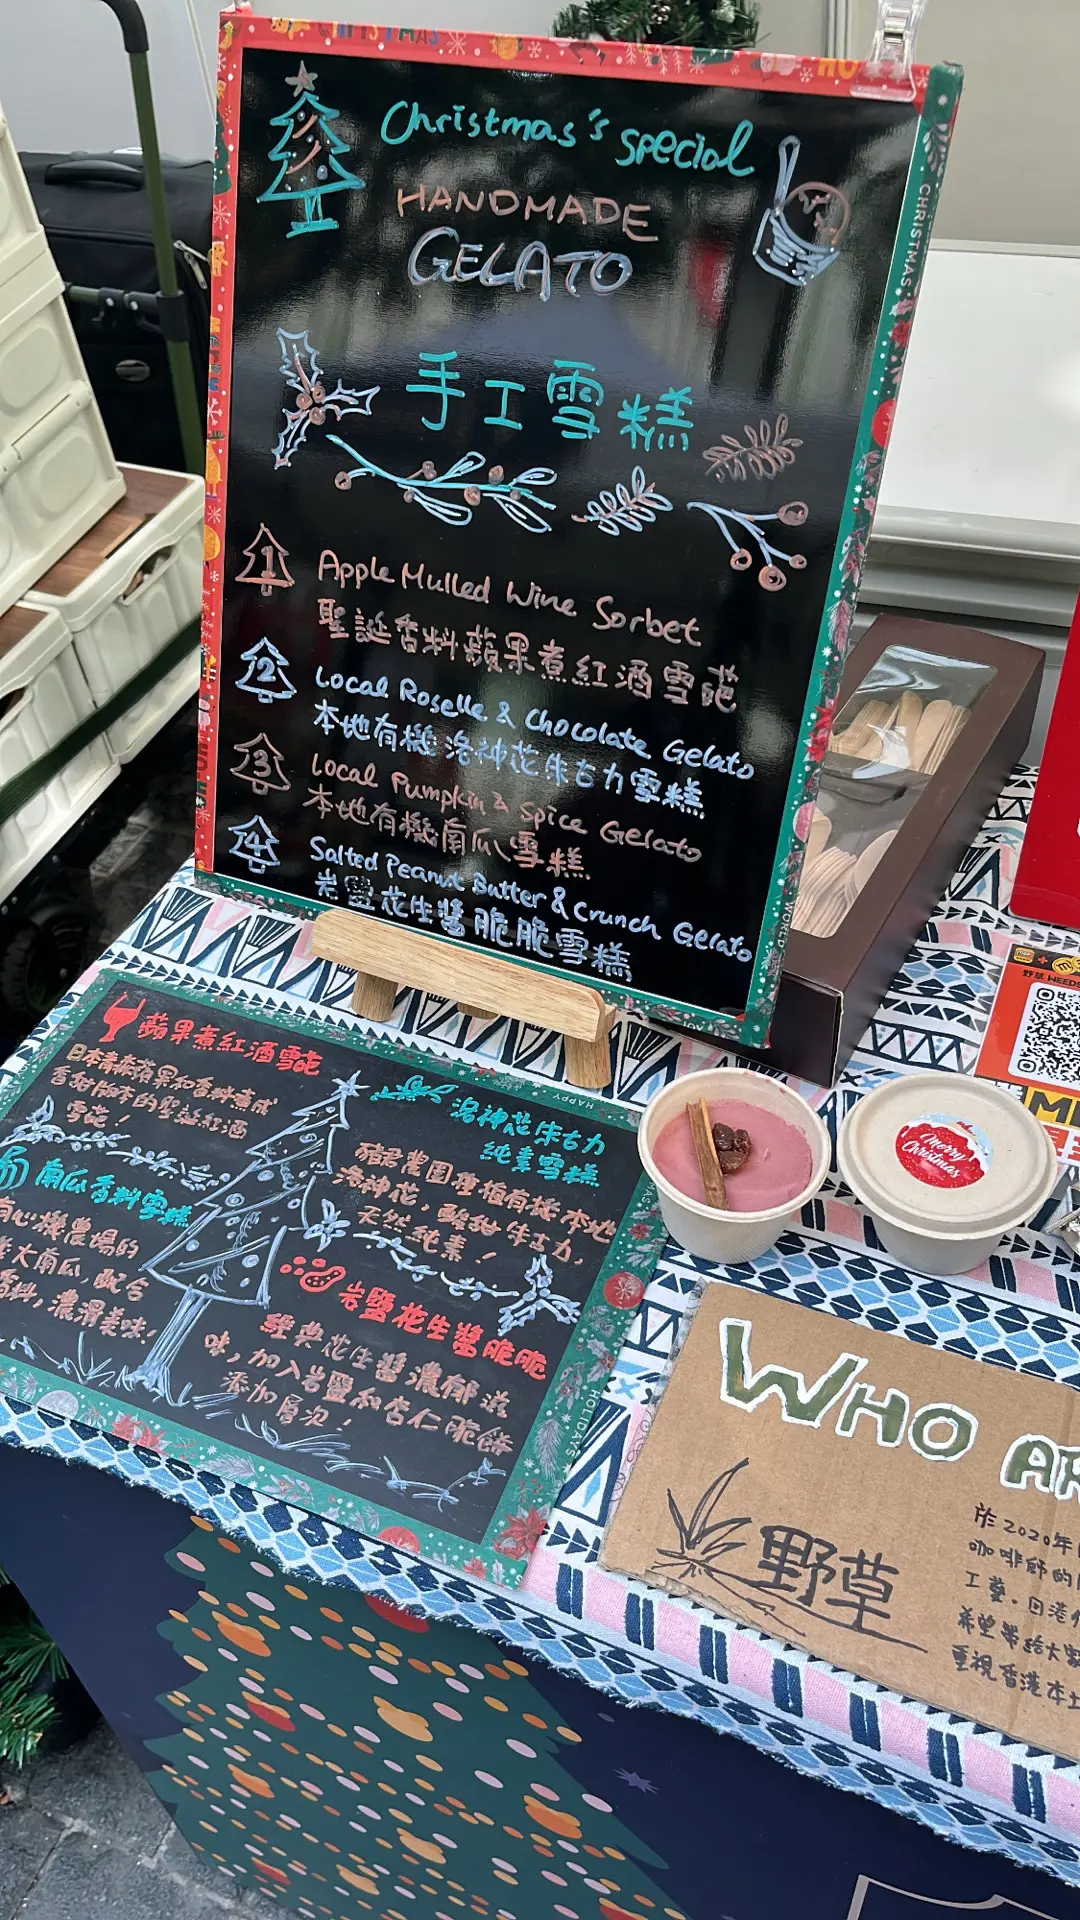 Christmas's special
HANDMADE
GELATO
手工雪糕
1
Apple Mulled Wine Sorbet
聖誕香料蘋果煮紅酒雪葩
2
Local Roselle & Chocolate Gelato
本地有機洛神花朱古力雪糕
3
Local Pumpkin & Spice Gelato
本地有機南瓜雪糕
4
Salted Peanut Butter & Crunch Gelato
岩鹽花生醬脆脆雪糕
CHRISTMAS
WORLD
蘋果煮紅酒雪葩
日本青森蘋果和香料煮成
香甜版本的聖誕紅酒
雪葩！
南瓜香料雪糕
心機農場的
大南瓜，配合
香料，濃滑美味！
洛神花朱古力
純素雪糕
豬君農圃種植有機本地
洛神花，酸甜朱古力，
天然純素！
岩鹽花生醬脆脆
經典花生醬濃郁滋
味，加入岩鹽和杏仁脆餅
添加層次！
HAPPY
HOLIDAYS
Merry
Christmas
野草 WEEDS
WHO AR
野草
於2020年
咖啡師的
工藝。因港
希望帶給大
重視香港本土